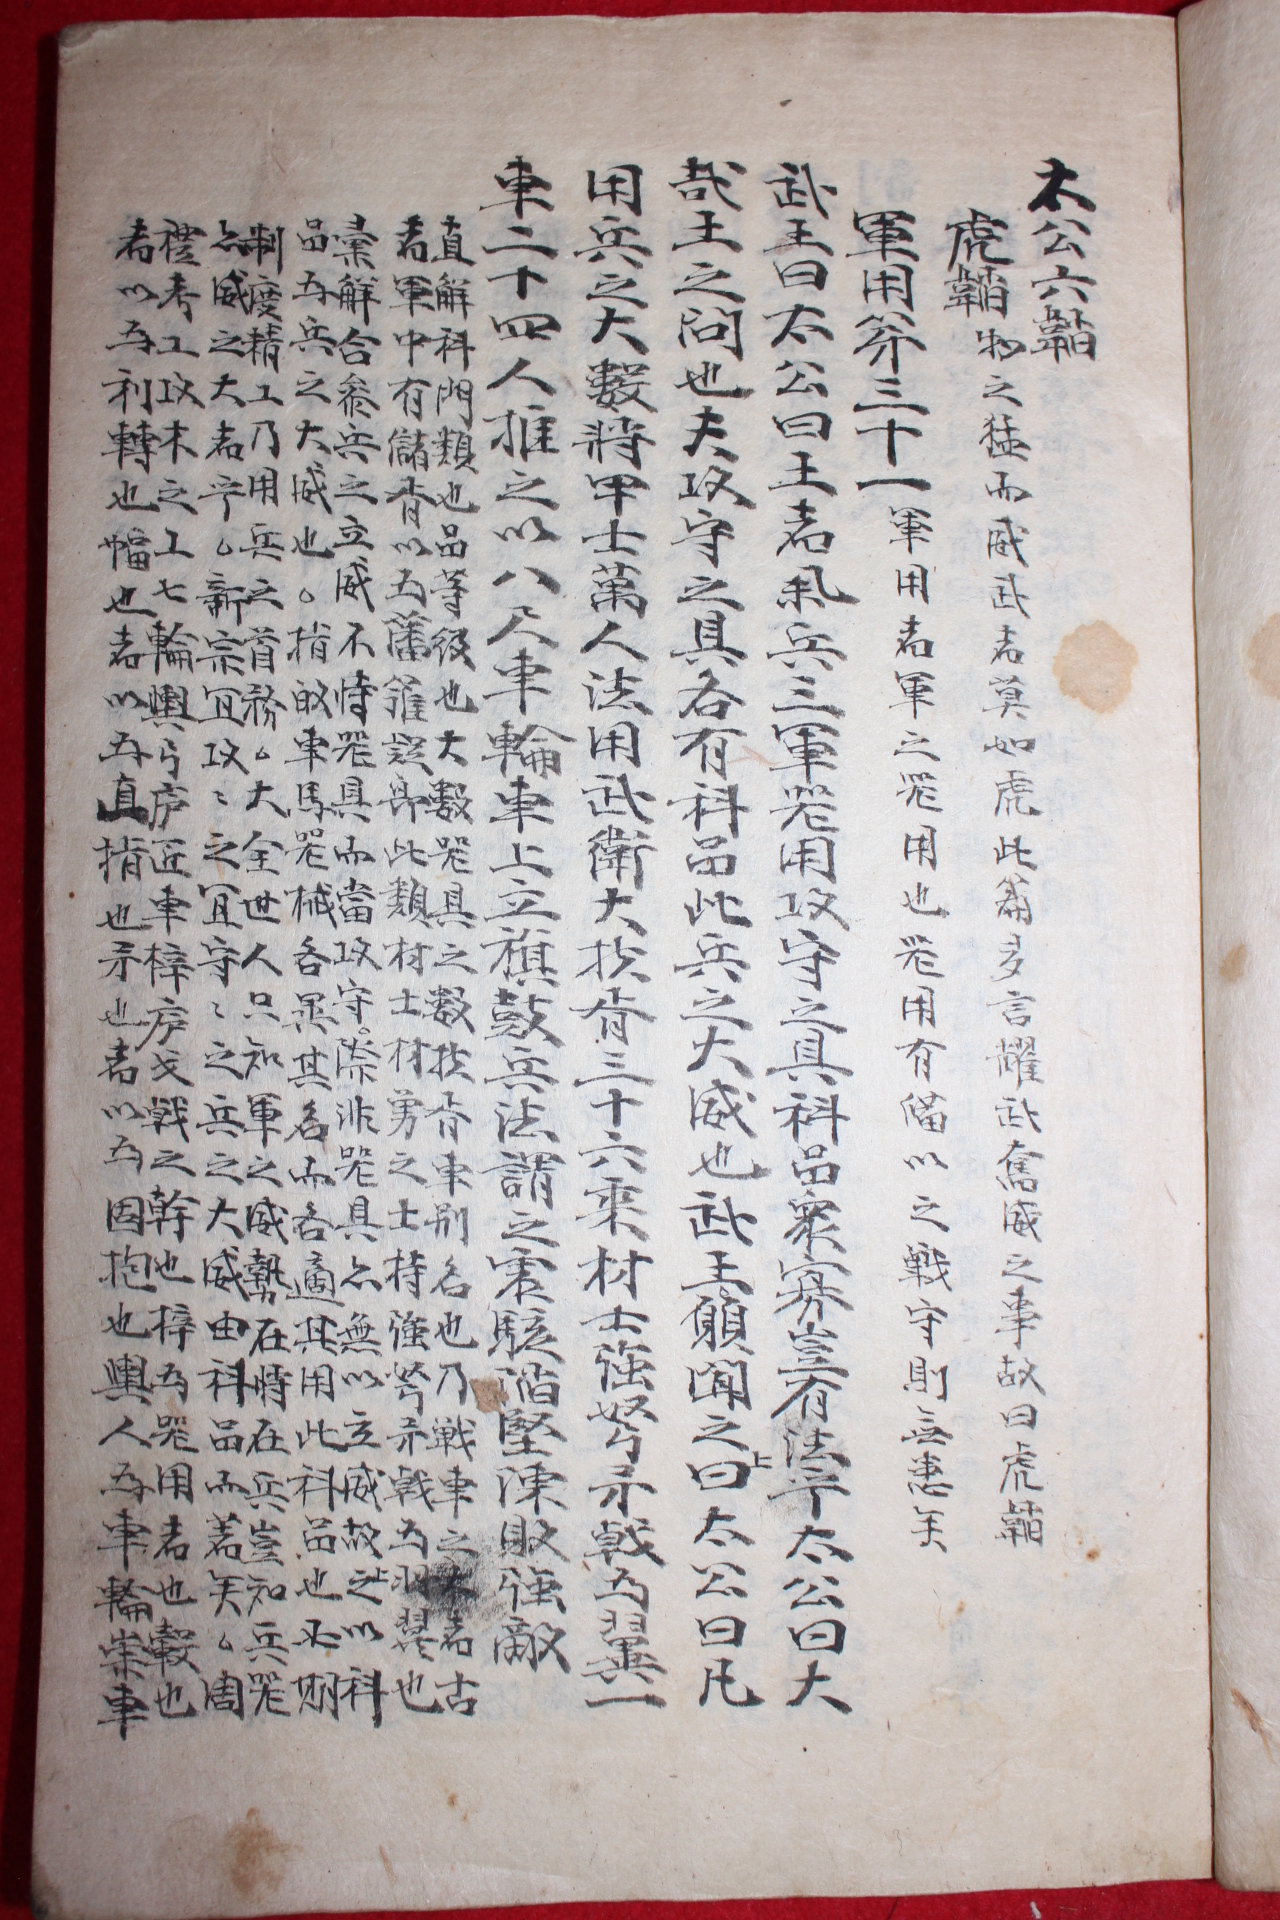 太公六韜
虎韜 物之猛而威武者莫如虎此篇多言耀武奮威之事故曰虎韜
軍用苐三十一 軍用者軍之器用也器用有備以之戰守則無患矣
武王曰太公曰王者擧兵三軍器用攻守之具科品衆寡豈有法乎太公曰大
哉王之問也夫攻守之具各有科品此兵之大威也武王願聞之曰上太公曰凡
用兵之大數將甲士萬人法用武衛大扶胥三十六乘材士強弩矛戟为翼一
車二十四人推之以八尺車輪車上立旗鼓兵法謂之震駭陷堅陳敗強敵
直解科門類也品等級也大數器具之數扶胥車别名也乃戰車之大者古
者軍中有儲胥以为藩籬疑即此類材士材勇之士持強弩矛戟为羽翼也
彙解合叅兵之立威不恃器具而當攻守際非器具亦無以立威故之上以科
品为兵之大威也。指的車馬器械各異其名而各適其用此科品也不期
制度精工乃用兵之首務。大全世人只知軍之威勢在將在兵豈知兵器
亦威之大者乎。新宗宜攻〻之宜守〻之兵之大威由科品而著矣。周
禮考工攻木之工七輪輿弓庐匠車梓庐戈戟之幹也梓为器用者也轂也
者以为利轉也幅也者以为直指也牙也者以为固抱也輿人为車輪崇車